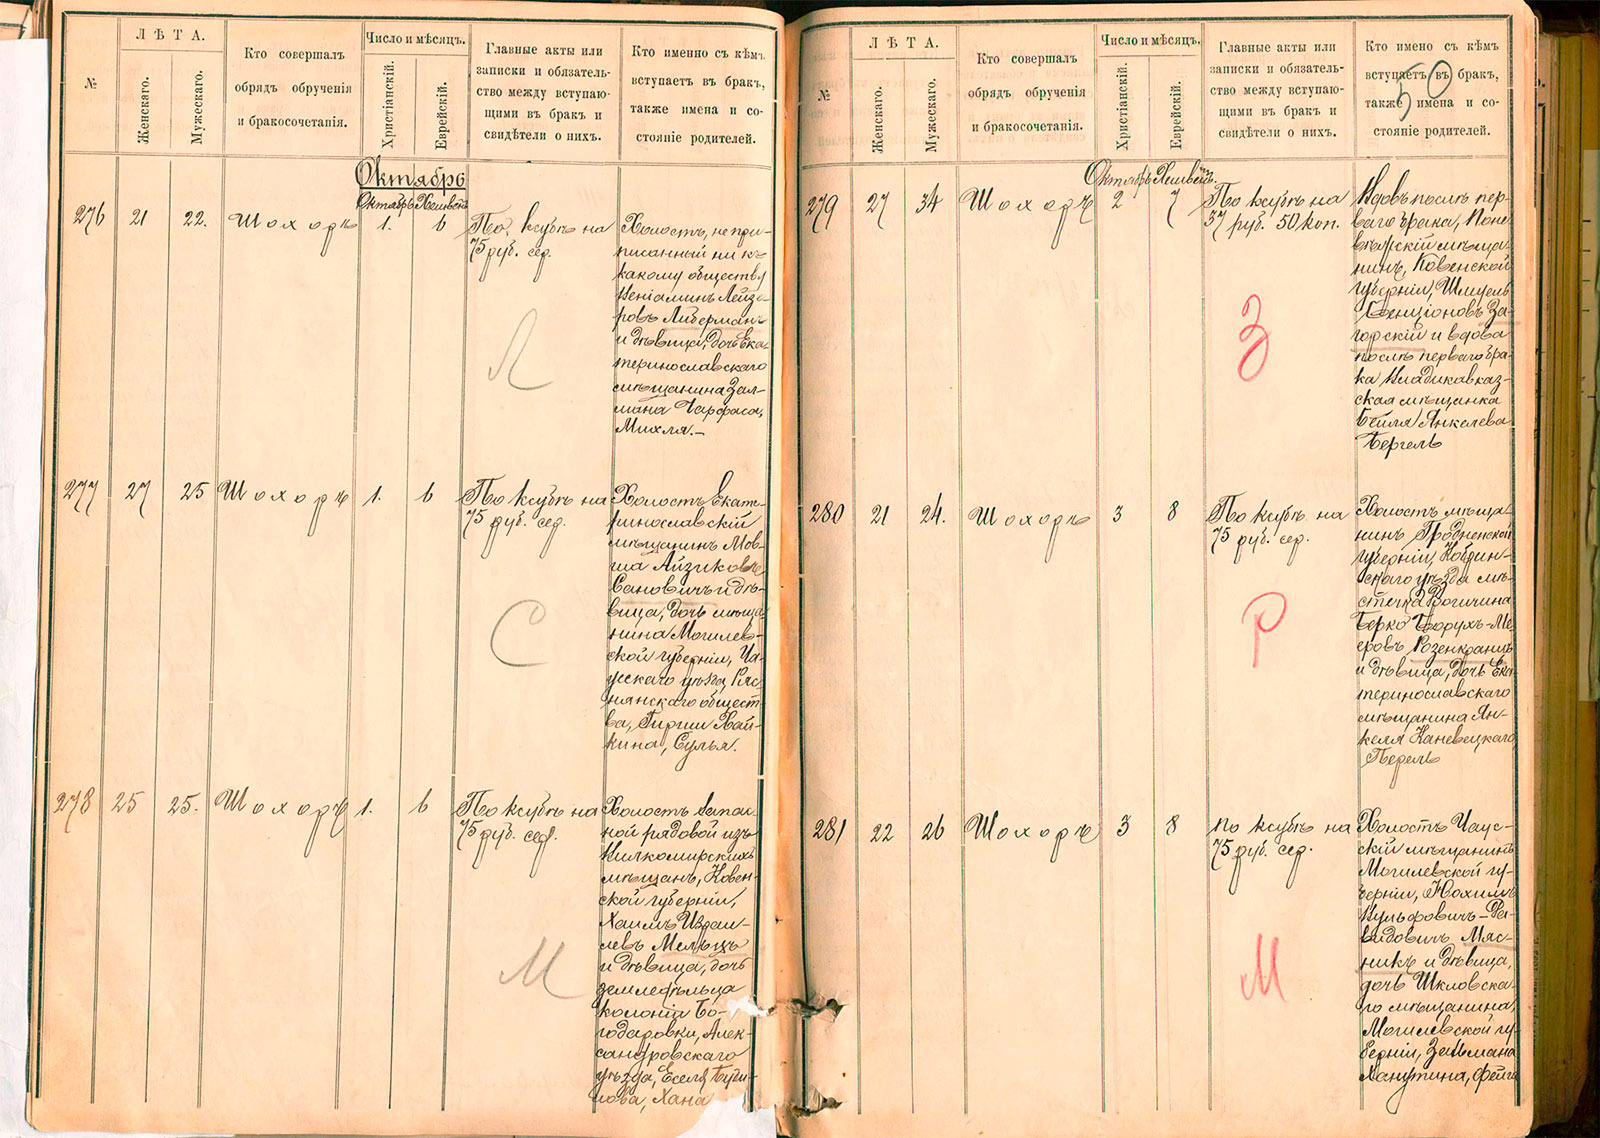 №
ЛѢТА.
Женскаго.
Мужескаго.
Кто совершалъ
обрядъ обрученія
и бракосочетанія.
Число и мѣсяцъ.
Христіанскій.
Еврейскій.
Главные акты или
записки и обязатель-
ство между вступаю-
щими въ бракъ и
свидѣтели о нихъ.
Кто именно съ кѣмъ
вступаетъ въ бракъ,
также имена и со-
стояніе родителей.
Октябрь
Октябрь Хешвенъ
276 21 22. Шохоръ 1. 6 По ксубѣ на
75 руб. сер.
Холостъ, не при-
писанный ни къ
какому обществу
Веніаминъ Лейзе-
ровъ Либерманъ
и дѣвица, дочь Ека-
теринославскаго
мѣщанина Зал-
мана Чарфаса,
Михля.–
Л
277 27 25 Шохоръ 1. 6 По ксубѣ на
75 руб. сер.
Холостъ Екате-
ринославскій
мѣщанинъ Мов-
ша Айзиковъ
Сановичъ и дѣ-
вица, дочь мѣща-
нина Могилев-
ской губерніи, Ча-
усскаго уѣзда, Ряс-
нянскаго общест-
ва, Гирши Хай-
кина, Сулья.
С
278 25 25. Шохоръ 1. 6 По ксубѣ на
75 руб. сер.
Холостъ запас-
ной рядовой изъ
Вилкомирскихъ
мѣщанъ, Ковен-
ской губерніи,
Хаимъ Израи-
левъ Мельцъ
и дѣвица, дочь
земледѣльца
колоніи Бо-
годаровки, Алек-
сандровскаго
уѣзда, Еселя
Хана
М
№
ЛѢТА.
Женскаго.
Мужескаго.
Кто совершалъ
обрядъ обрученія
и бракосочетанія.
Число и мѣсяцъ.
Христіанскій.
Еврейскій.
Главные акты или
записки и обязатель-
ство между вступаю-
щими въ бракъ и
свидѣтели о нихъ.
Кто имено съ кѣмъ
вступаетъ въ бракъ,
также имена и со-
стояніе родителей.
50
Октябрь Хешвенъ
279 27 34 Шохоръ 2 7 По ксубѣ на
37 руб. 50 коп.
Вдовъ послѣ пер-
ваго брака, Поне-
вѣжскій мѣща-
нинъ, Ковенской
губерніи, Шмуель
Бенціоновъ За-
горскій и вдова
послѣ перваго бра-
ка Владикавказ-
ская мѣщанка
Бейля Янкелева
Бергель
З
280 21 24. Шохоръ 3 8 По ксубѣ на
75 руб. сер.
Холостъ мѣща-
нинъ Гродненской
губерніи, Кобрин-
скаго уѣзда мѣ-
стечка
Берко Борухъ-Ме-
еровъ Розенкранцъ
и дѣвица, дочь Ека-
теринославскаго
мѣщанина Ян-
келя Каневецкаго,
Перель
Р
281 22 26 Шохоръ 3 8 по ксубѣ на
75 руб. сер.
Холостъ Чаус-
скій мѣщанинъ
Могилевской гу-
берніи, Нохимъ
Вульфовичъ-Да-
видовичъ Мяс-
никъ и дѣвица,
дочь Шкловска-
го мѣщанина,
Могилевской гу-
берніи, Зельмана
Ханутина, Фейга
М